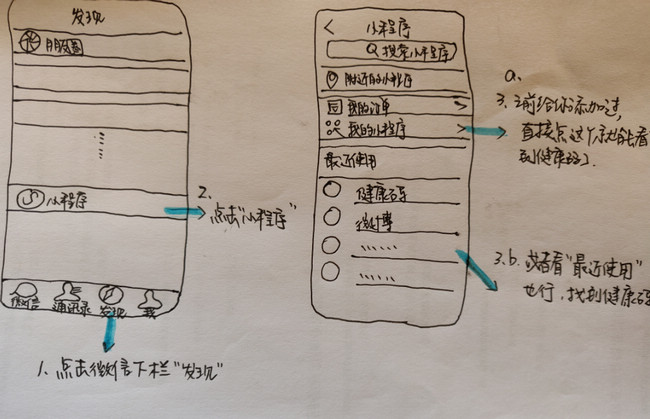 发现
朋友圈
小程序
微信 通讯录 发现 我
1. 点击微信下栏"发现"
2.
点击"小程序"
< 小程序
搜索小程序
附近的小程序
我的订单 >
我的小程序 >
最近使用
健康码
微博
a.
3. 之前给你添加过,
直接点这个就能看
到健康码了.
3.b. 或者看"最近使用"
也行,找到健康码